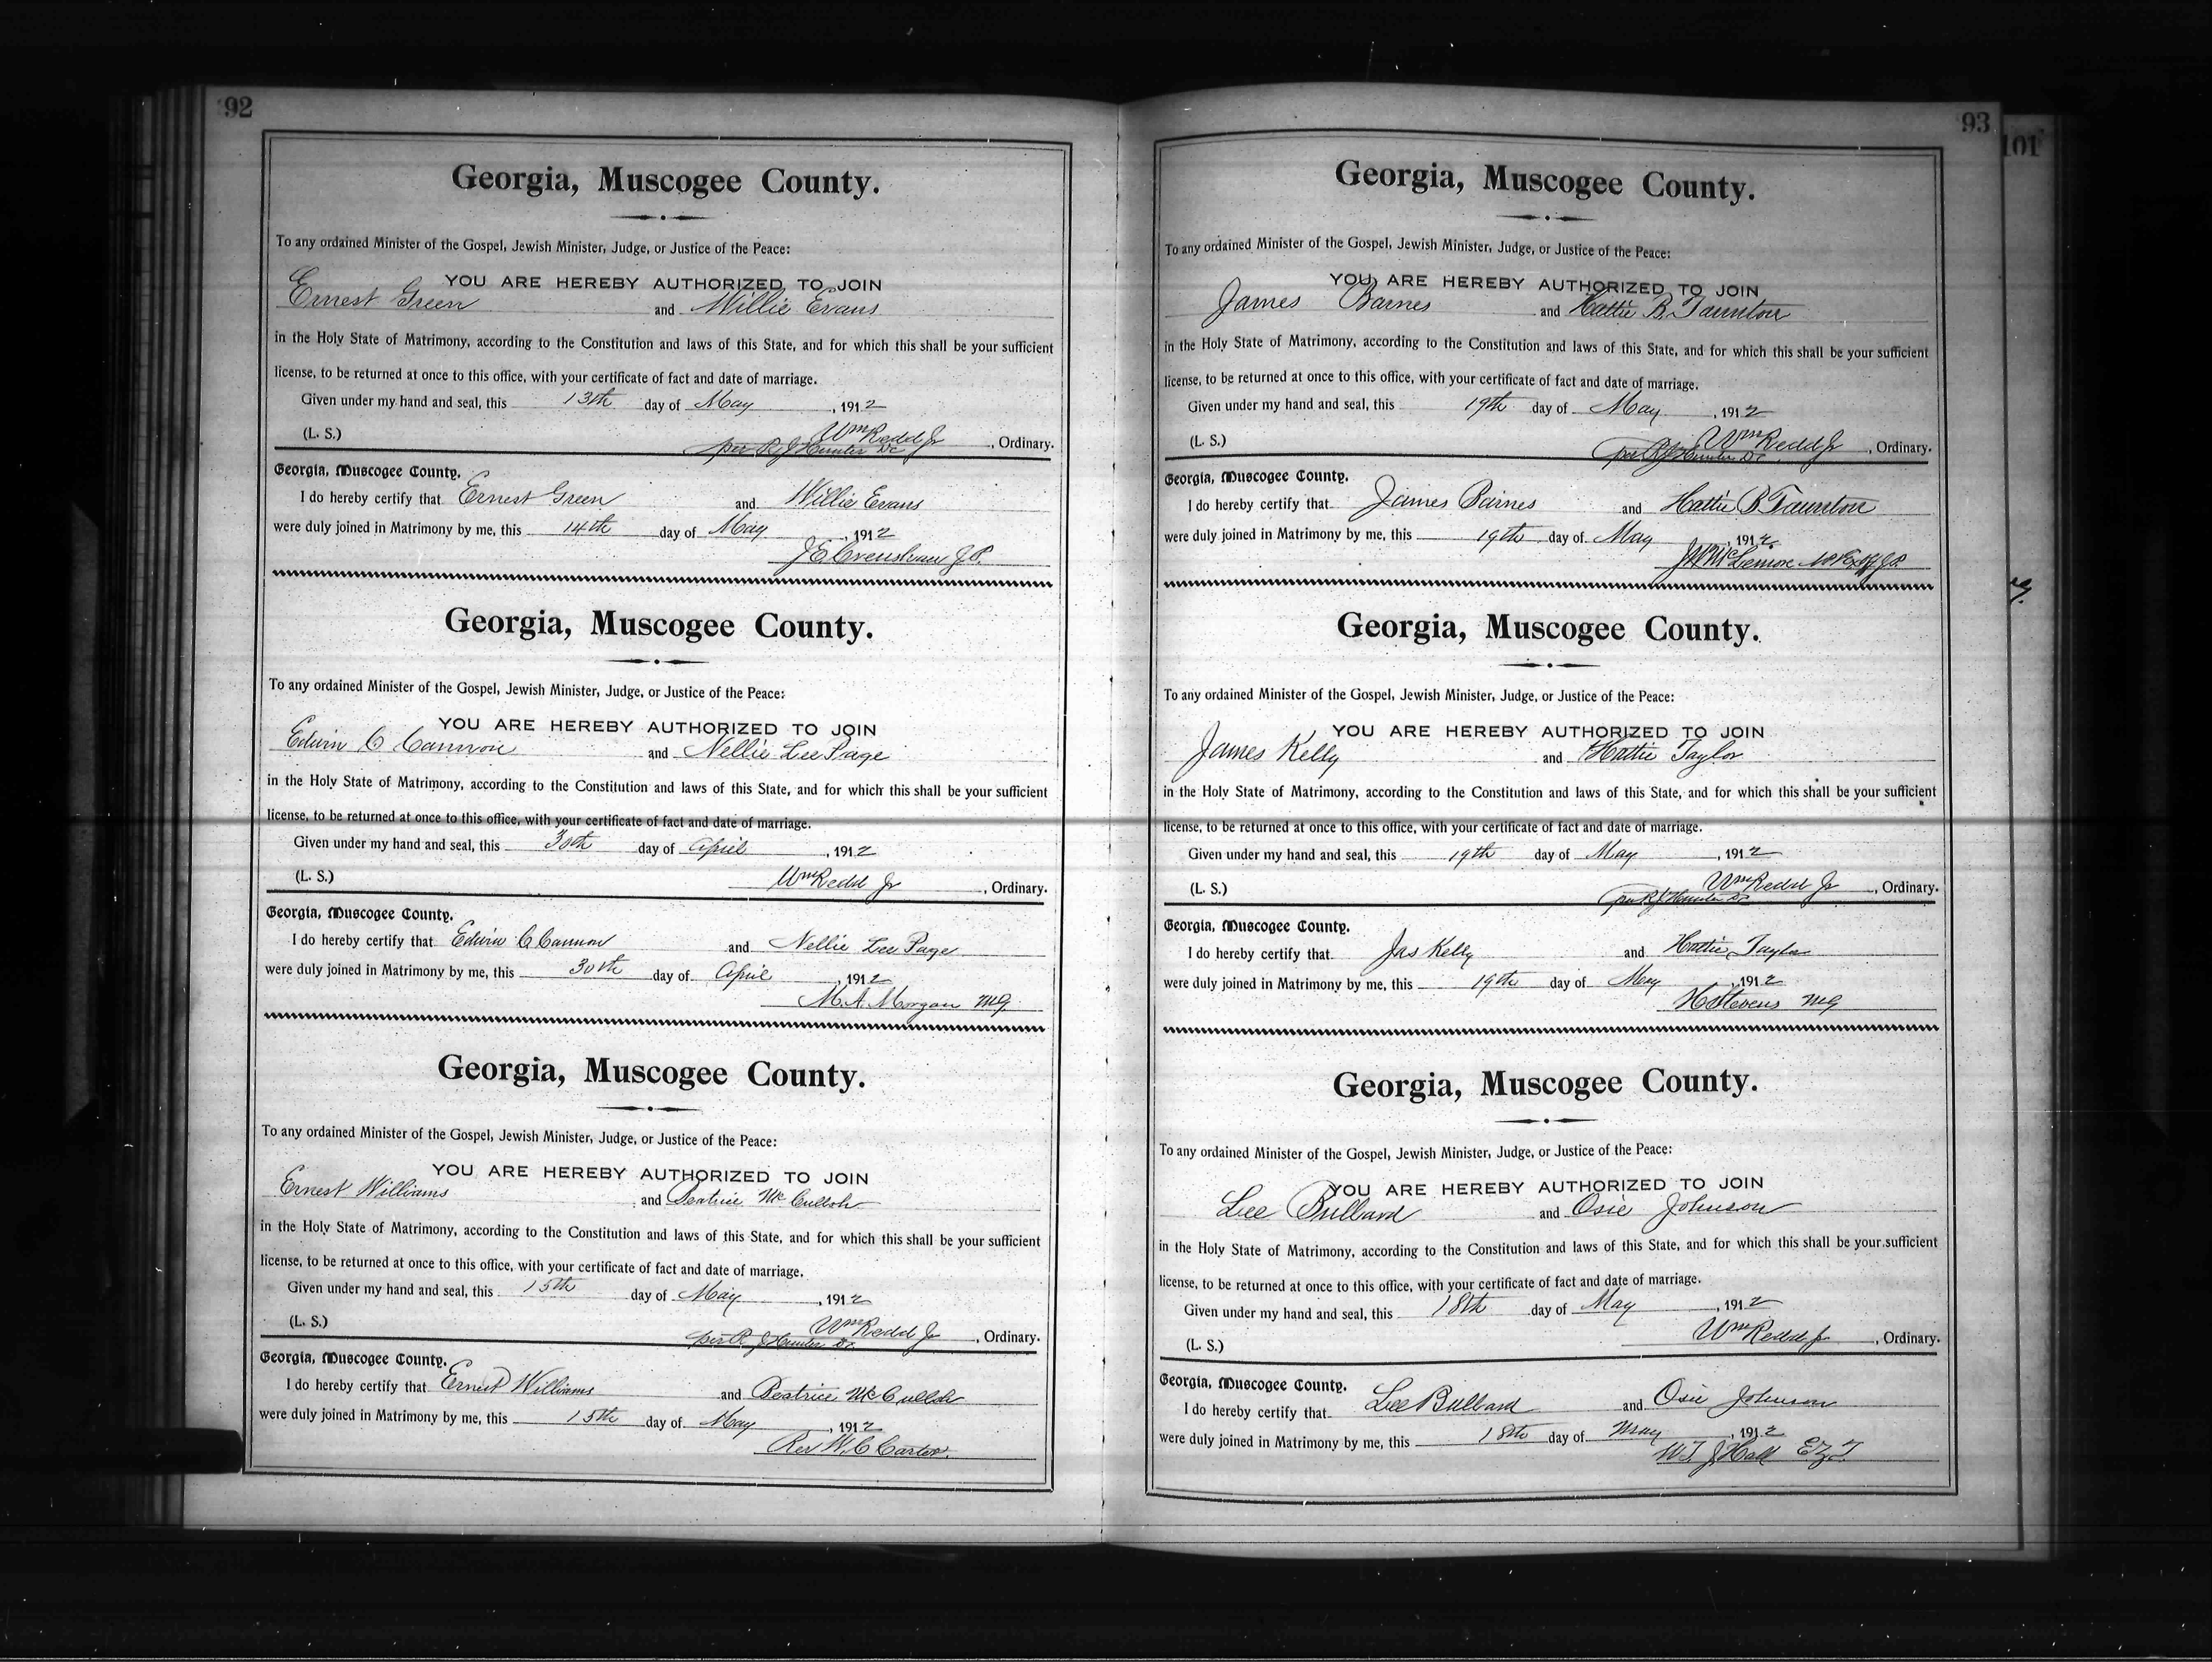 92
Georgia, Muscogee County.
To any ordained Minister of the Gospel, Jewish Minister, Judge, or Justice of the Peace:
YOU ARE HEREBY AUTHORIZED TO JOIN
Ernest Green and Willie Evans
in the Holy State of Matrimony, according to the Constitution and laws of this State, and for which this shall be your sufficient
license, to be returned at once to this office, with your certificate of fact and date of marriage.
Given under my hand and seal, this 13th day of May, 1912
(L. S.) Wm Redd Jr, Ordinary.
per R J Hunter DC
Georgia, Muscogee County.
I do hereby certify that Ernest Green and Willie Evans
were duly joined in Matrimony by me, this 14th day of May, 1912
J E Crenshaw J P.
Georgia, Muscogee County.
To any ordained Minister of the Gospel, Jewish Minister, Judge, or Justice of the Peace:
YOU ARE HEREBY AUTHORIZED TO JOIN
Edwin C Cannon and Nellie Lee Page
in the Holy State of Matrimony, according to the Constitution and laws of this State, and for which this shall be your sufficient
license, to be returned at once to this office, with your certificate of fact and date of marriage.
Given under my hand and seal, this 30th day of April, 1912
(L. S.) Wm Redd Jr, Ordinary.
Georgia, Muscogee County.
I do hereby certify that Edwin C Cannon and Nellie Lee Page
were duly joined in Matrimony by me, this 30th day of April, 1912
M. A. Morgan MG.
Georgia, Muscogee County.
To any ordained Minister of the Gospel, Jewish Minister, Judge, or Justice of the Peace:
YOU ARE HEREBY AUTHORIZED TO JOIN
Ernest Williams and Beatrice McCulloh
in the Holy State of Matrimony, according to the Constitution and laws of this State, and for which this shall be your sufficient
license, to be returned at once to this office, with your certificate of fact and date of marriage.
Given under my hand and seal, this 15th day of May, 1912
(L. S.) Wm Redd Jr, Ordinary.
per R J Hunter DC
Georgia, Muscogee County.
I do hereby certify that Ernest Williams and Beatrice McCulloh
were duly joined in Matrimony by me, this 15th day of May, 1912
Rev W. C Carter.
93
101
Georgia, Muscogee County.
To any ordained Minister of the Gospel, Jewish Minister, Judge, or Justice of the Peace:
YOU ARE HEREBY AUTHORIZED TO JOIN
James Barnes and Hattie B. Taunton
in the Holy State of Matrimony, according to the Constitution and laws of this State, and for which this shall be your sufficient
license, to be returned at once to this office, with your certificate of fact and date of marriage.
Given under my hand and seal, this 19th day of May, 1912
(L. S.) Wm Redd Jr, Ordinary.
per R J Hunter DC
Georgia, Muscogee County.
I do hereby certify that James Barnes and Hattie B Taunton
were duly joined in Matrimony by me, this 19th day of May, 1912.
McLemore J.P.
Georgia, Muscogee County.
To any ordained Minister of the Gospel, Jewish Minister, Judge, or Justice of the Peace:
YOU ARE HEREBY AUTHORIZED TO JOIN
James Kelly and Hattie Taylor
in the Holy State of Matrimony, according to the Constitution and laws of this State, and for which this shall be your sufficient
license, to be returned at once to this office, with your certificate of fact and date of marriage.
Given under my hand and seal, this 19th day of May, 1912
(L. S.) Wm Redd Jr, Ordinary.
per R J Hunter DC
Georgia, Muscogee County.
I do hereby certify that Jas Kelly and Hattie Taylor
were duly joined in Matrimony by me, this 19th day of May, 1912
Stevens MG
Georgia, Muscogee County.
To any ordained Minister of the Gospel, Jewish Minister, Judge, or Justice of the Peace:
YOU ARE HEREBY AUTHORIZED TO JOIN
Lee Bullard and Osie Johnson
in the Holy State of Matrimony, according to the Constitution and laws of this State, and for which this shall be your sufficient
license, to be returned at once to this office, with your certificate of fact and date of marriage.
Given under my hand and seal, this 18th day of May, 1912
(L. S.) Wm Redd Jr, Ordinary.
Georgia, Muscogee County.
I do hereby certify that Lee Bullard and Osie Johnson
were duly joined in Matrimony by me, this 18th day of May, 1912
W. T. J Hall